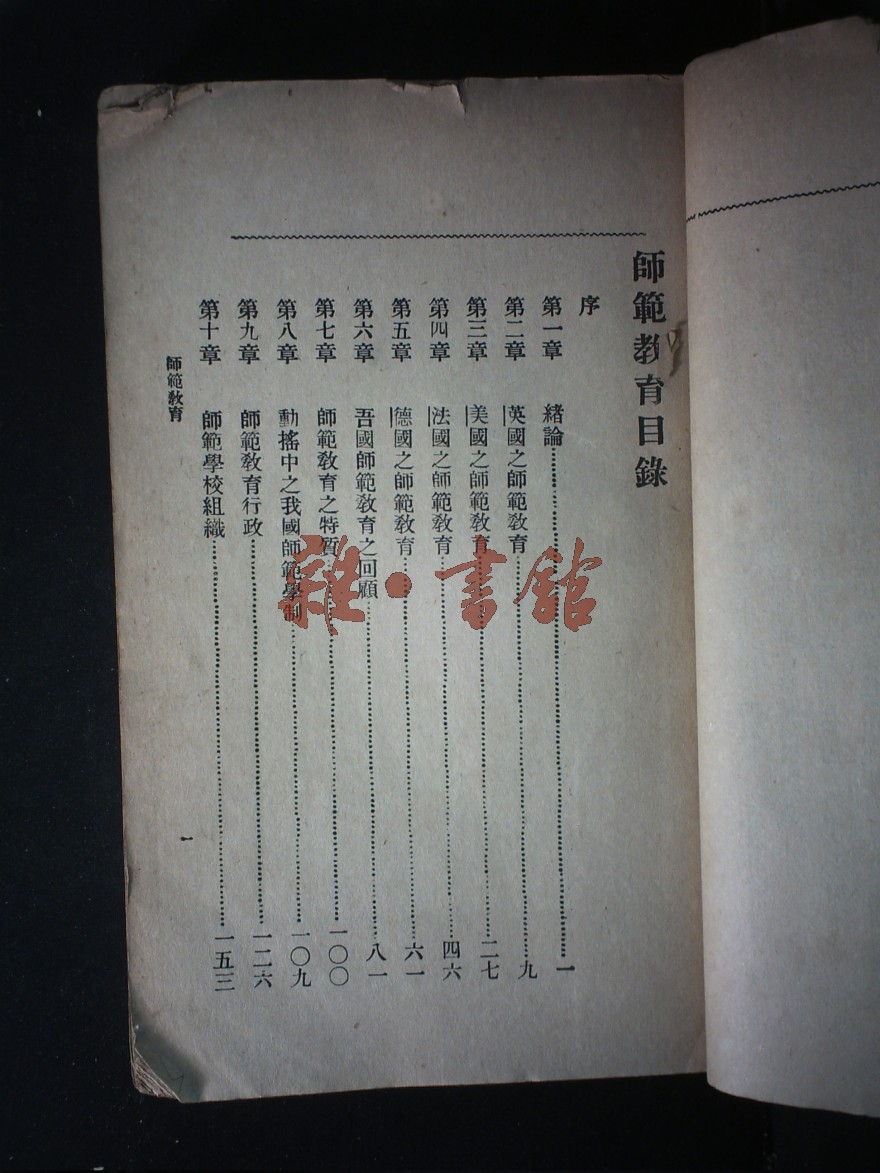 師範教育目錄
序
第一章 緒論…………一
第二章 英國之師範教育…………九
第三章 美國之師範教育…………二七
第四章 法國之師範教育…………四六
第五章 德國之師範教育…………六一
第六章 吾國師範教育之回顧…………八一
第七章 師範教育之特質…………一〇〇
第八章 動搖中之我國師範學制…………一〇九
第九章 師範教育行政…………一二六
第十章 師範學校組織…………一五三
師範教育
一
雜·書館